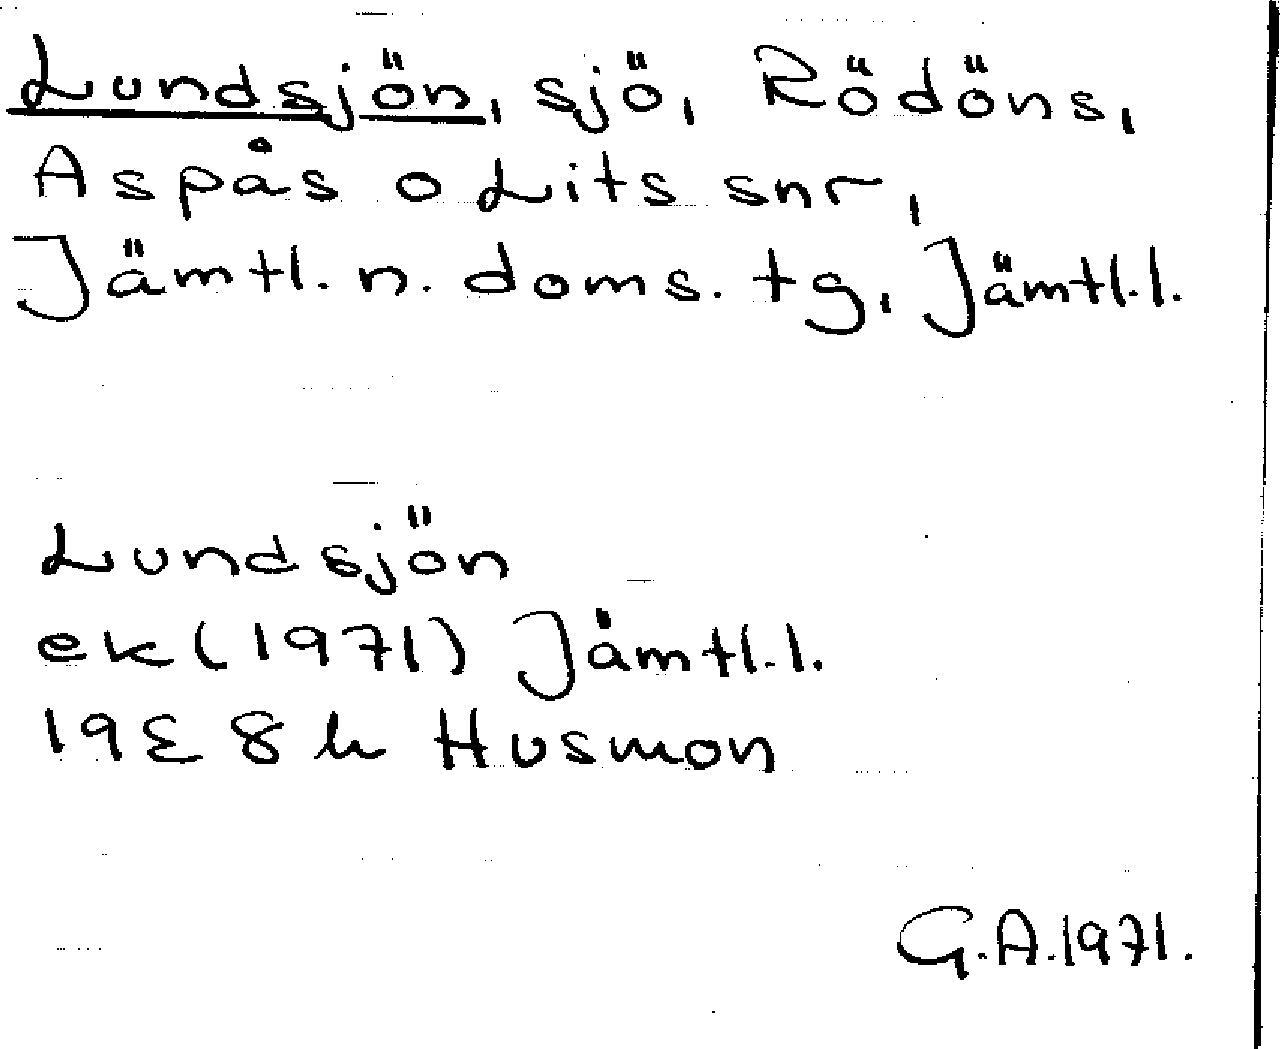 Lundsjön, sjö, Rödöns,
Aspås o Lits snr,
Jämtl. n. doms. tg, Jämtl.l.
Lundsjön
ek (1971) Jämtl.l.
19E 8h Husmon
G.A.1971.